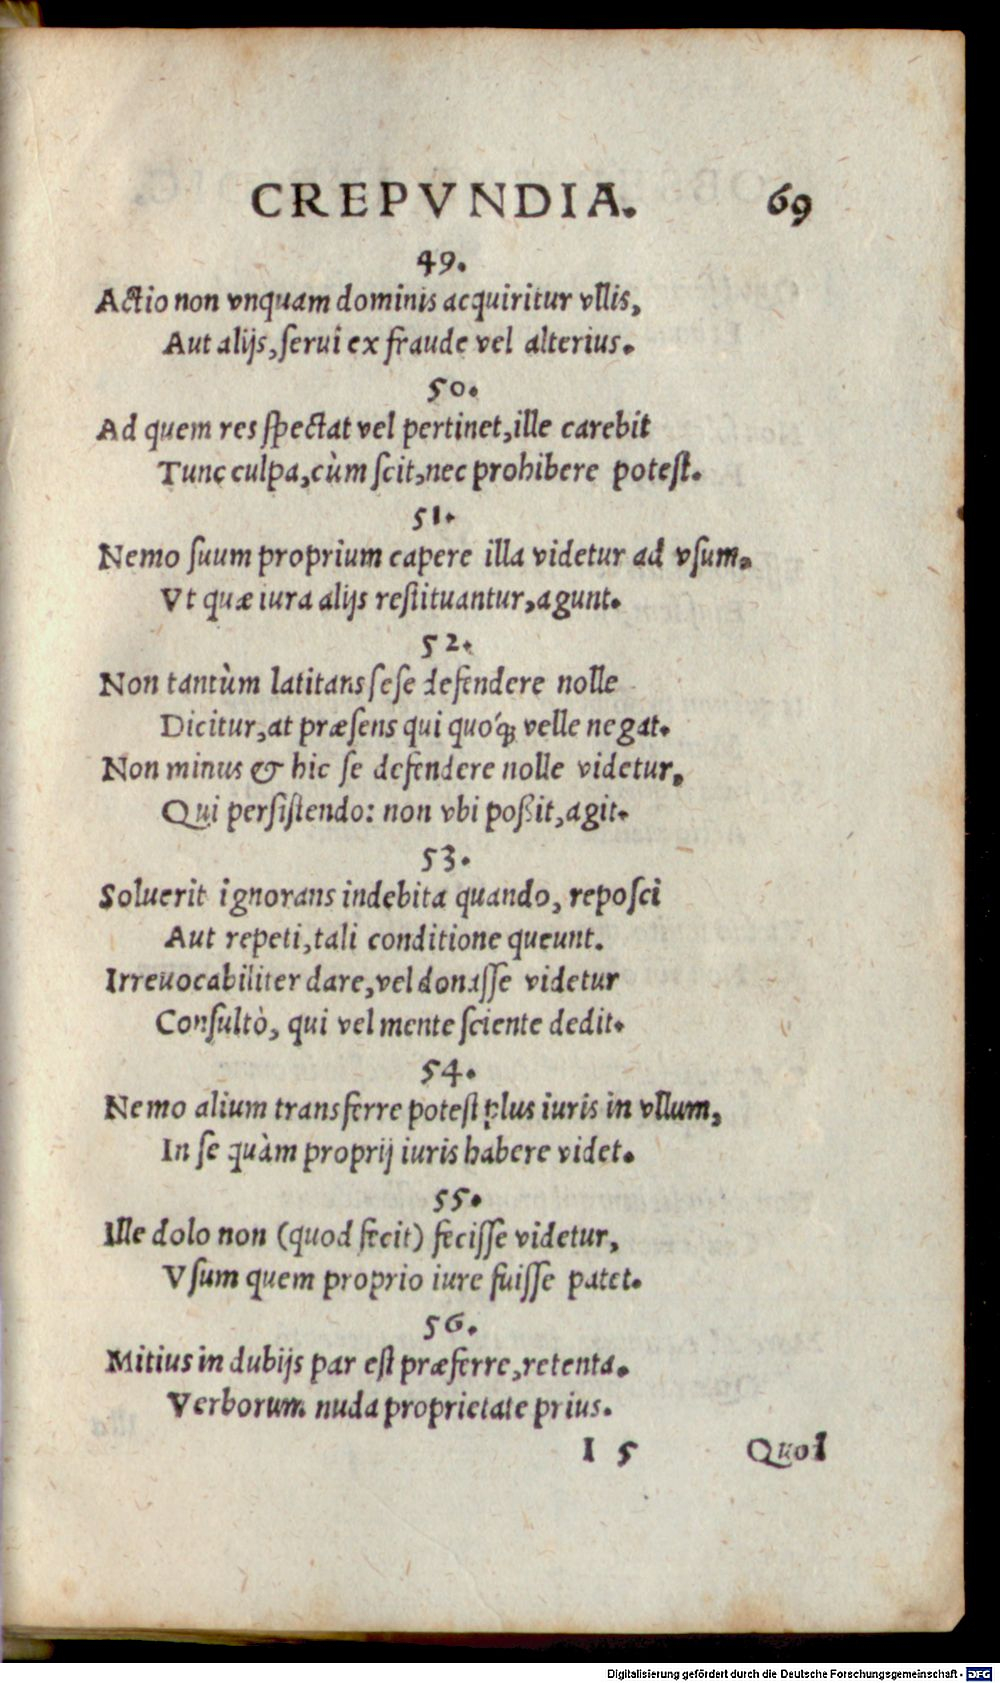 CREPVNDIA. 69
49.
Actio non vnquam dominis acquiritur vllis,
Aut alijs, ſerui ex fraude vel alterius.
50.
Ad quem res ſpectat vel pertinet, ille carebit
Tunc culpa, cùm ſcit, nec prohibere poteſt.
51.
Nemo ſuum proprium capere illa videtur ad vſum.
Vt quæ iura alijs reſtituantur, agunt.
52.
Non tantùm latitans ſeſe defendere nolle
Dicitur, at præſens qui quoq́; velle negat.
Non minus & hic ſe defendere nolle videtur,
Qui perſiſtendo: non vbi poßit, agit.
53.
Soluerit ignorans indebita quando, repoſci
Aut repeti, tali conditione queunt.
Irreuocabiliter dare, vel donaſſe videtur
Conſultò, qui vel mente ſciente dedit.
54.
Nemo alium transferre poteſt plus iuris in vllum,
In ſe quàm proprij iuris habere videt.
55.
Ille dolo non (quod fecit) feciſſe videtur,
Vſum quem proprio iure fuiſſe patet.
56.
Mitius in dubijs par eſt præferre, retenta.
Verborum nuda proprietate prius.
I 5 Quod
Digitalisierung gefördert durch die Deutsche Forschungsgemeinschaft - DFG